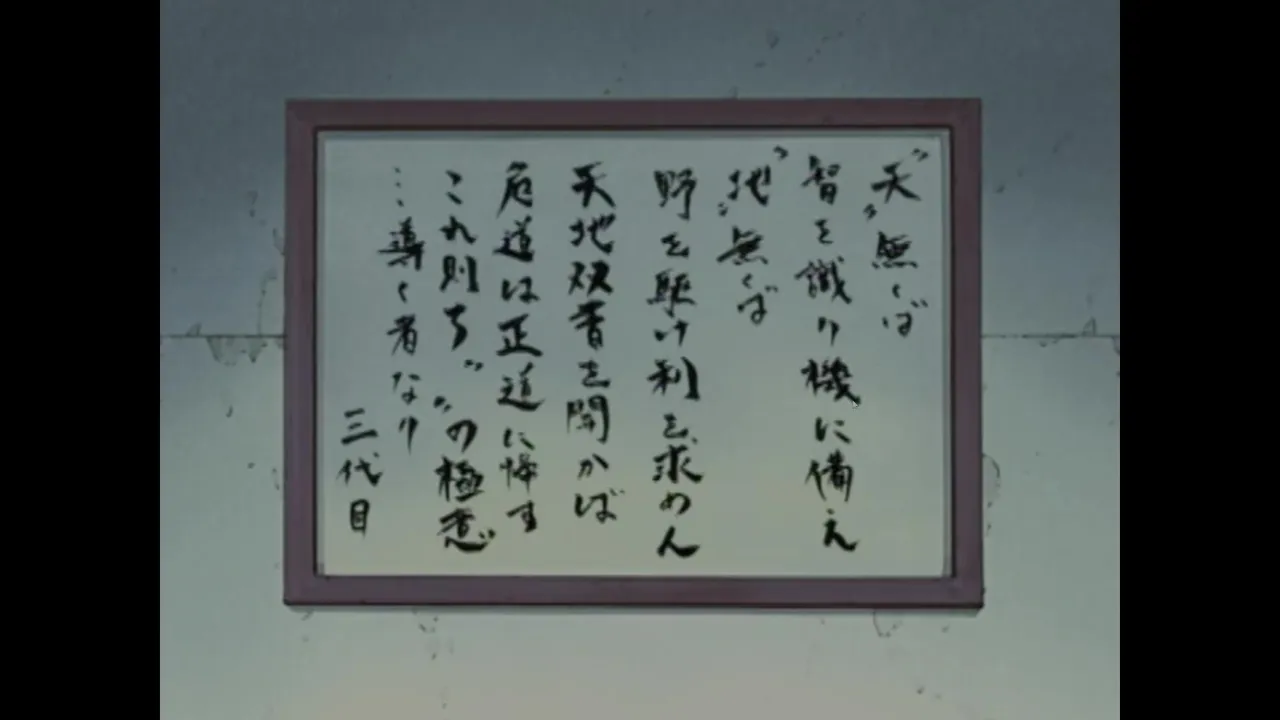 〝天〟無くば
智を識り機に備え
〝地〟無くば
野を駆け利を求めん
天地双書を開かば
危道は正道に帰す
これ則ち〝〟の極意
…導く者なり
三代目